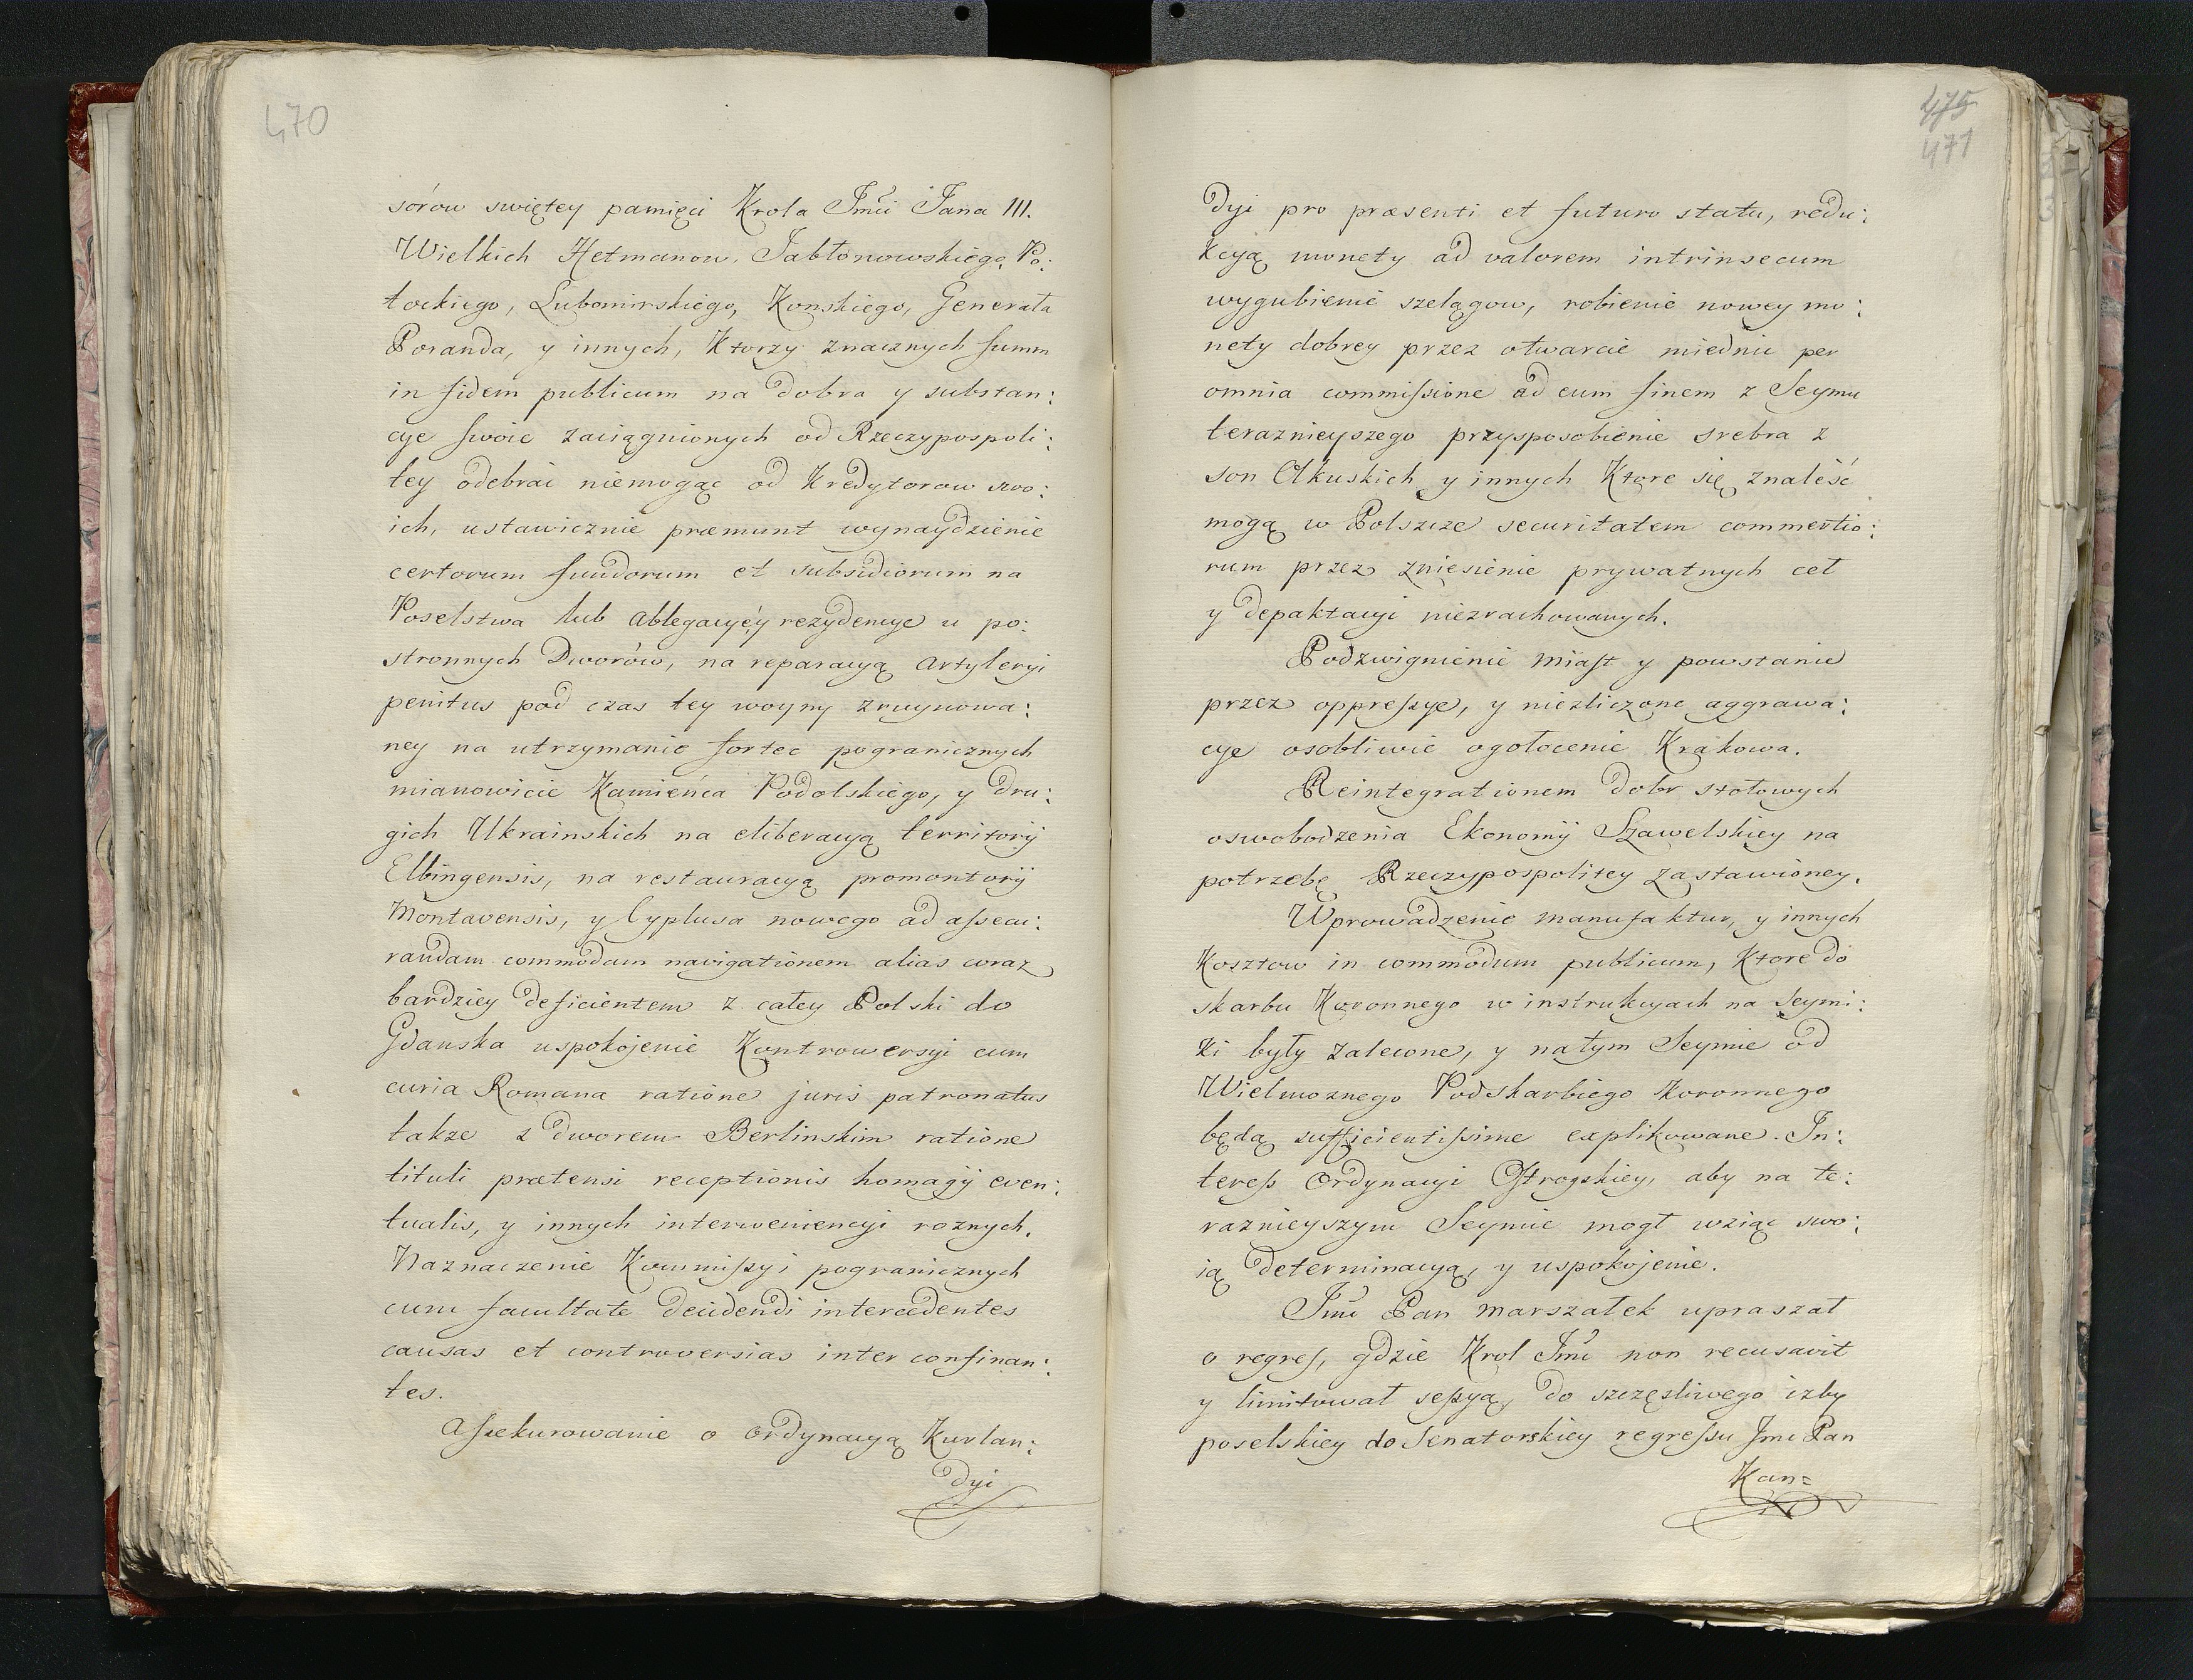 470
sórow swiętey pamięci Krola Jmći Jana III.
Wielkich Hetmanow, Jabłonowskiego, Po:
tockiego, Lubomirskiego, Konskiego, Generała
Poranda, y innych, Ktorzy znacznych summ
in fidem publicum na dobra y substan:
cye swoie zaciągnionych od Rzeczypospoli:
tey odebrać niemogąc od Kredytorow swo:
ich, ustawicznie præmunt wynaydzienie
certorum fundorum et subsidiorum na
Poselstwa lub ablegacye, y rezydencye u po:
stronnych Dworów, na reparacyą Artyleryi
penitus pod czas tey woyny zruynowa:
ney na utrzymanie fortec pogranicznych
mianowicie Kamieńca Podolskiego, y dru:
gich Ukrainskich na eliberacyą territorij
Elbingensis, na restauracyą promontorij
Montavensis, y Cyplusa nowego ad assecu:
randam commodam navigationem alias coraz
bardziey deficientem z całey Polski do
Gdanska uspokojenie Kontrowersyi cum
curia Romana ratione juris patronatus
takze z dworem Berlinskim ratione
tituli prætensi receptionis homagij even:
tualis, y innych interweniencyi roznych.
Naznaczenie Kommissyi pogranicznych
cum facultate decidendi intercedentes
causas et controversias inter confinan:
tes.
Assekurowanie o ordynacyą Kurlan:
dyi
475
471
dyi pro præsenti et futuro statu, redu:
kcyą monety ad valorem intrinsecum
wygubienie szelągow, robienie nowey mo:
nety dobrey przez otwarcie miednic per
omnia commissione ad eum finem z Seymu
teraznieyszego przysposobienie srebra z
son Olkuskich y innych Ktore się znaleść
mogą w Polszcze securitatem commertio:
rum przez zniesienie prywatnych ceł
y depaktacyi niezrachowanych.
Podzwignienie miast y powstanie
przez oppressye, y niezliczone aggrawa:
cye osobliwie ogołocenie Krakowa.
Reintegrationem dobr stołowych
oswobodzenia Ekonomij Szawelskiey na
potrzebę Rzeczypospolitey zastawioney.
Wprowadzenie manufaktur, y innych
Kosztow in commodum publicum, Ktore do
skarbu Koronnego w instrukcyach na seymi:
ki były zalecone, y natym Seymie od
Wielmoznego Podskarbiego Koronnego
będą sufficientissime explikowane. In:
teress ordynacyi Ostrogskiey, aby na te:
raznieyszym Seymie mogł wziąc swo:
ią determinacyą, y uspokojenie.
Jmć Pan marszałek upraszał
o regres, gdzie Krol Jmć non recusavit
y limitował sessyą, do szczęsliwego izby
poselskiey do Senatorskiey regressu Jmć Pan
Kan=